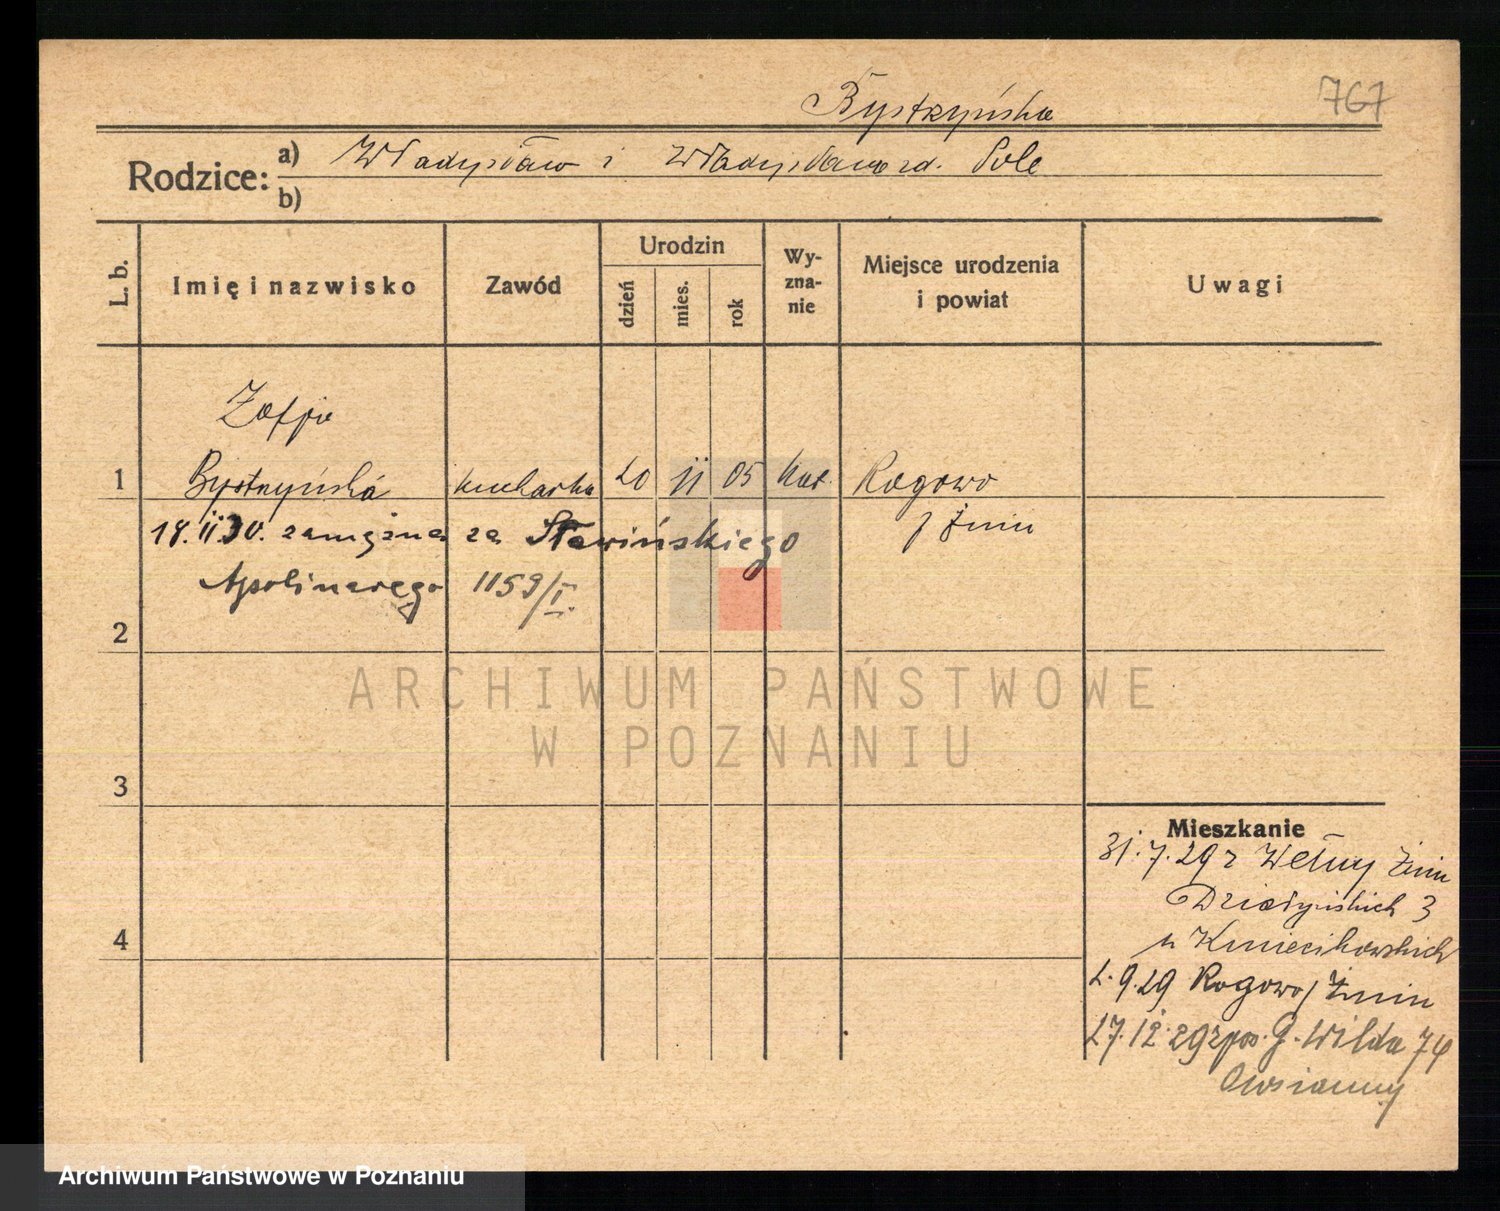 Bystrzyńska
767
Rodzice: a) Władysław i Władysława zd. Sole
b)
L. b.
Imię i nazwisko
Zawód
Urodzin
dzień
mies.
rok
Wy-
zna-
nie
Miejsce urodzenia
i powiat
Uwagi
Zofja
1 Bystrzyńska kucharka 20 II 05 kat. Rogowo
p Żnin
18. II 30. zamężna za Sławińskiego
Apolinarego 1159/I.
2
3
4
Mieszkanie
31.7.29 z Wełny Żnin
Działyńskich 3
u Kmiecikowskich
2.9.29 Rogowo/Żnin
27.12.29 z pow. G. Wilda 74
ARCHIWUM PAŃSTWOWE
W POZNANIU
Archiwum Państwowe w Poznaniu